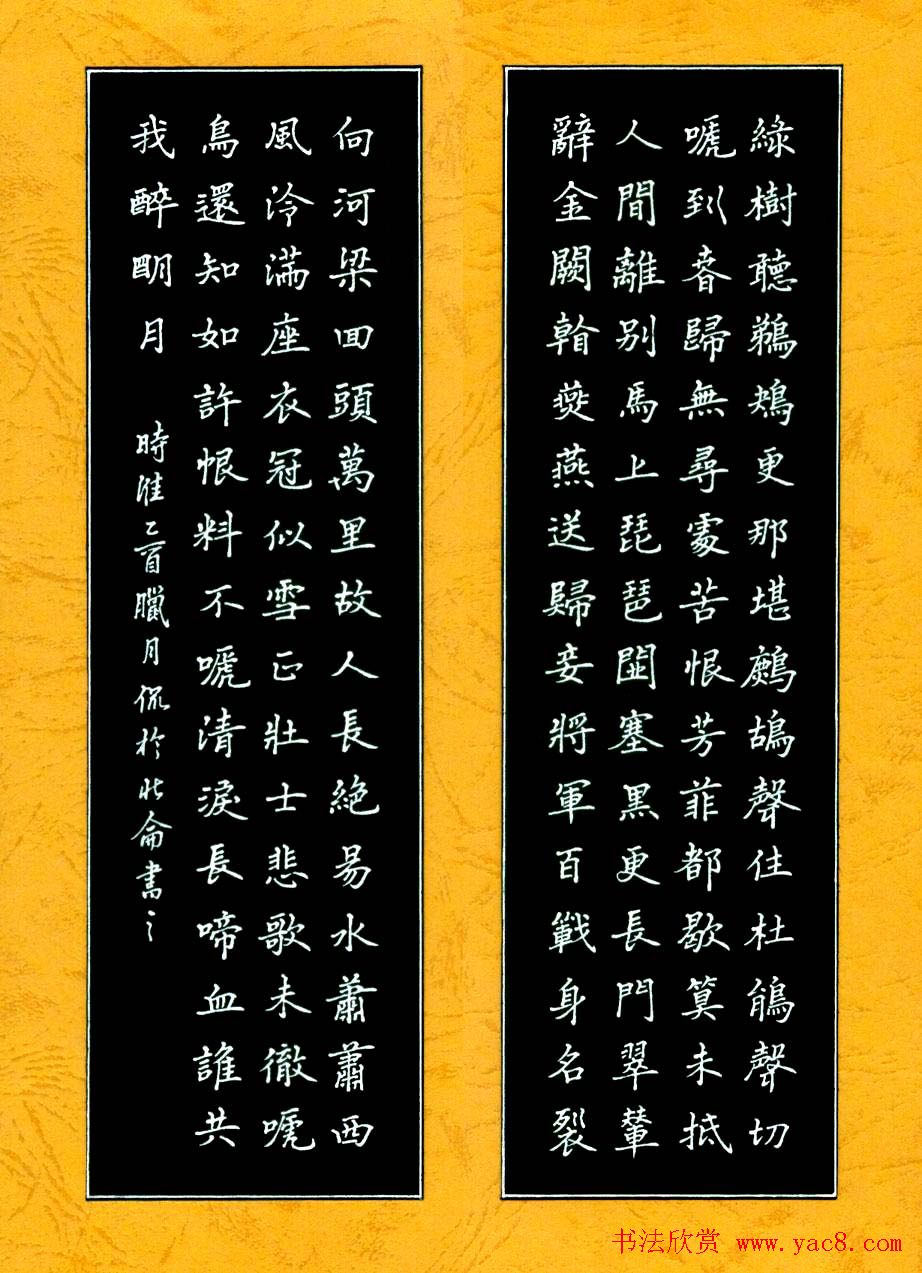 綠樹聽鵜鴂更那堪鷓鴣聲住杜鵑聲切
嗁到春歸無尋處苦恨芳菲都歇算未抵
人間離別馬上琵琶關塞黑更長門翠輦
辭金闕看燕燕送歸妾將軍百戰身名裂
向河梁回頭萬里故人長絕易水蕭蕭西
風冷滿座衣冠似雪正壯士悲歌未徹嗁
鳥還知如許恨料不嗁清淚長啼血誰共
我醉明月
時 乙酉臘月侃於北侖書之
书法欣赏 www.yac8.com